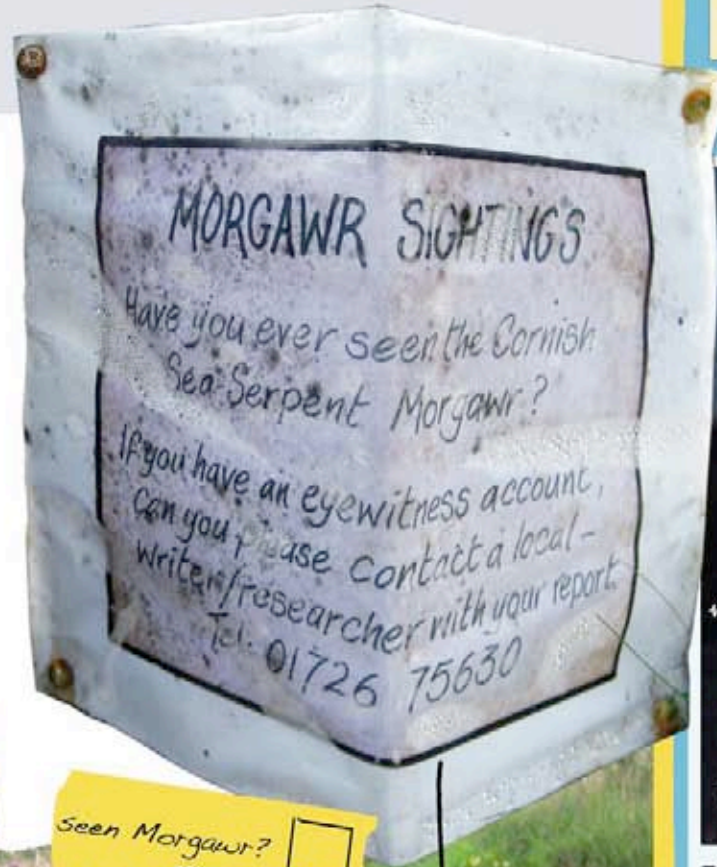 MORGAWR SIGHTING'S
Have you ever seen the Cornish
Sea Serpent Morgawr?
If you have an eyewitness account,
Can you please contact a local-
writer/researcher with your report.
Tel: 01726 75630
seen Morgawr?